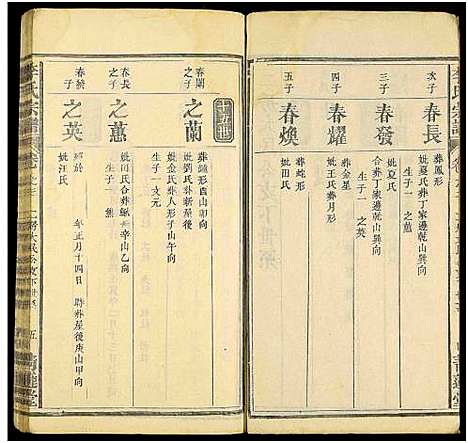 李氏宗譜
次子
春長
葬鳳形
妣夏氏葬丁家邊乾山巽向
生子一 之蕙
三子
春發
妣夏氏
合葬丁家邊乾山巽向
生子一 之英
四子
春耀
葬金星
妣王氏葬月形
五子
春煥
葬蛇形
妣田氏
十五世
春蘭
之子
之蘭
葬蛇形酉山卯向
妣劉氏葬新屋後
妣金氏葬人形子山午向
生子一 文元
春長
之子
之蕙
妣田氏合葬
辛山乙向
生子一
春
之子
之英
年正月十四日
時葬屋後庚山甲向
妣汪氏
李氏宗譜
卷
五
青蓮堂